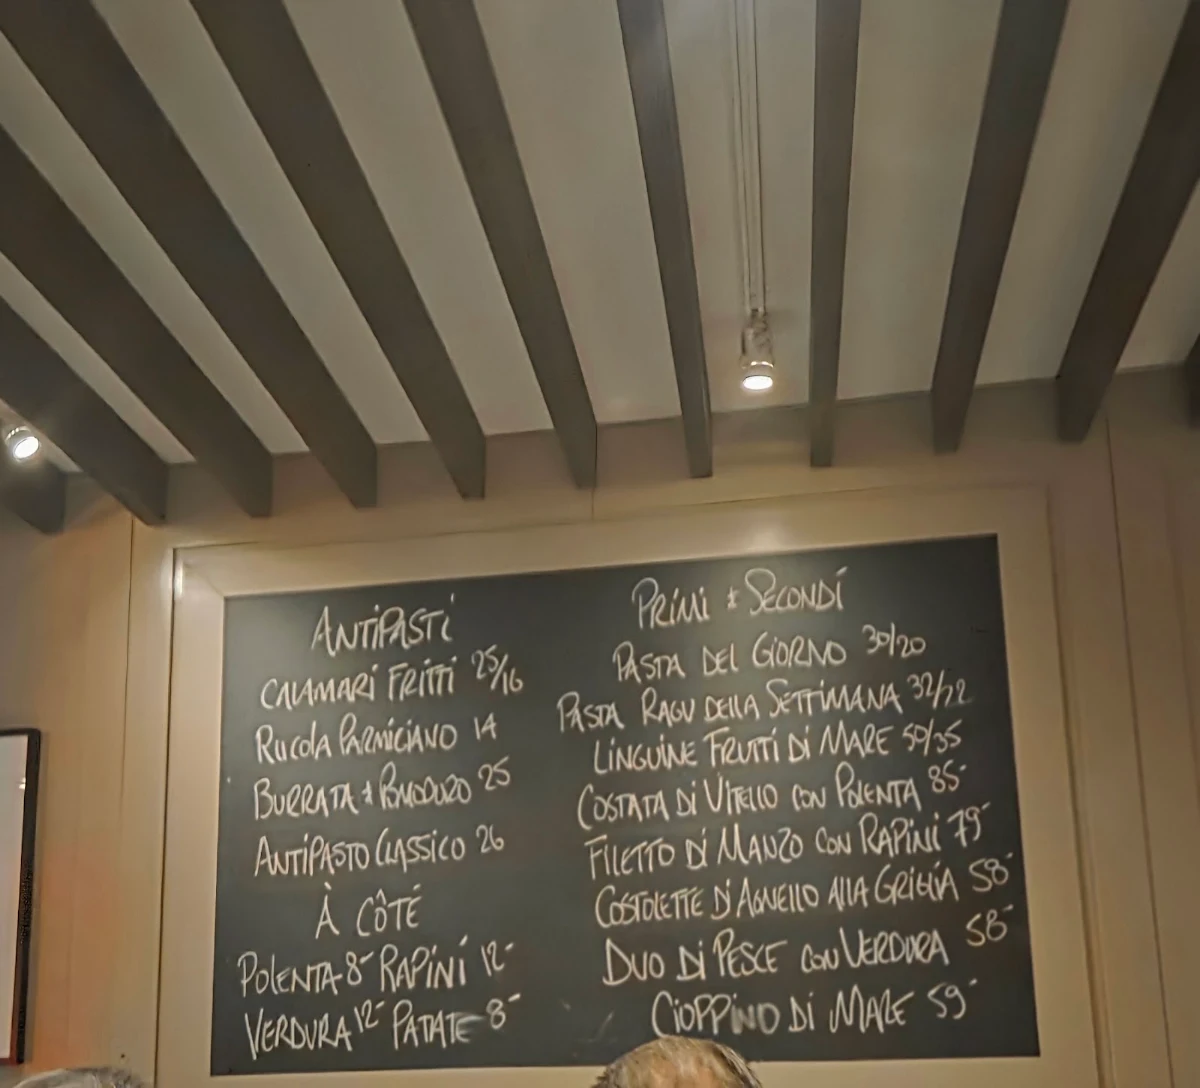 ANTIPASTI
CALAMARI FRITTI 25/16
RUCOLA PARMIGIANO 14
BURRATA & POMODORO 25
ANTIPASTO CLASSICO 26
À CÔTÉ
POLENTA 8- RAPINI 12-
VERDURA 12- PATATE 8-
PRIMI & SECONDI
PASTA DEL GIORNO 30/20
PASTA RAGU DELLA SETTIMANA 32/22
LINGUINE FRUTTI DI MARE 50/35
COSTATA DI VITELLO CON POLENTA 85-
FILETTO DI MANZO CON RAPINI 79-
COSTOLETTE D'AGNELLO ALLA GRIGLIA 58-
DUO DI PESCE CON VERDURA 58-
CIOPPINO DI MARE 59-